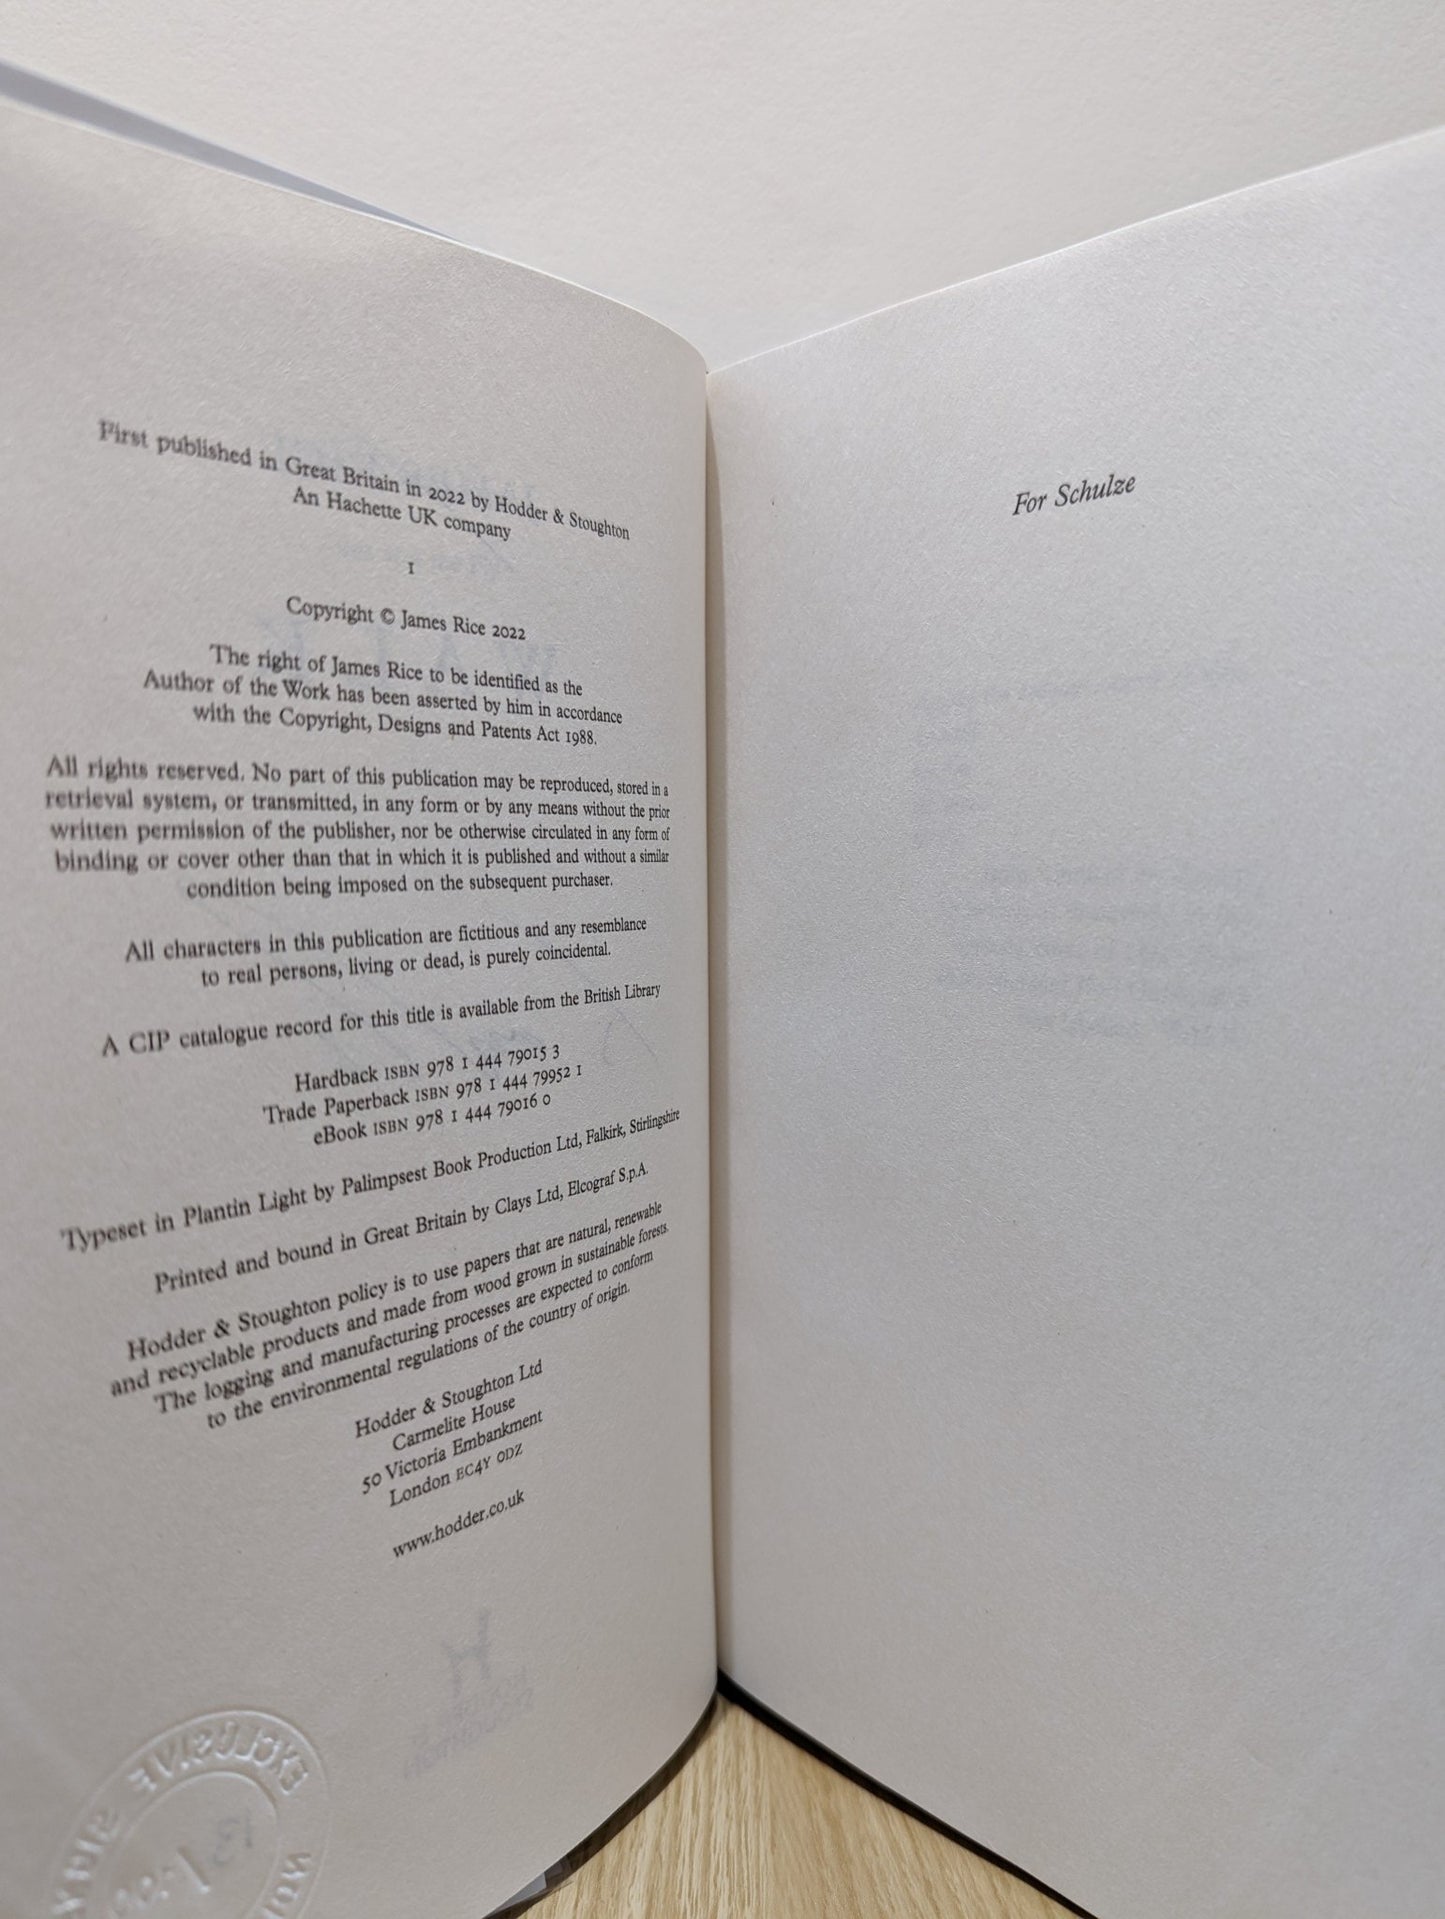 First published in Great Britain in 2022 by Hodder & Stoughton
An Hachette UK company
1
Copyright © James Rice 2022
The right of James Rice to be identified as the
Author of the Work has been asserted by him in accordance
with the Copyright, Designs and Patents Act 1988.
All rights reserved. No part of this publication may be reproduced, stored in a
retrieval system, or transmitted, in any form or by any means without the prior
written permission of the publisher, nor be otherwise circulated in any form of
binding or cover other than that in which it is published and without a similar
condition being imposed on the subsequent purchaser.
All characters in this publication are fictitious and any resemblance
to real persons, living or dead, is purely coincidental.
A CIP catalogue record for this title is available from the British Library
Hardback ISBN 978 1 444 79015 3
Trade Paperback ISBN 978 1 444 79952 1
eBook ISBN 978 1 444 79016 0
Typeset in Plantin Light by Palimpsest Book Production Ltd, Falkirk, Stirlingshire
Printed and bound in Great Britain by Clays Ltd, Elcograf S.p.A.
Hodder & Stoughton policy is to use papers that are natural, renewable
and recyclable products and made from wood grown in sustainable forests.
The logging and manufacturing processes are expected to conform
to the environmental regulations of the country of origin.
Hodder & Stoughton Ltd
Carmelite House
50 Victoria Embankment
London EC4Y 0DZ
www.hodder.co.uk
EXCLUSIVE
For Schulze